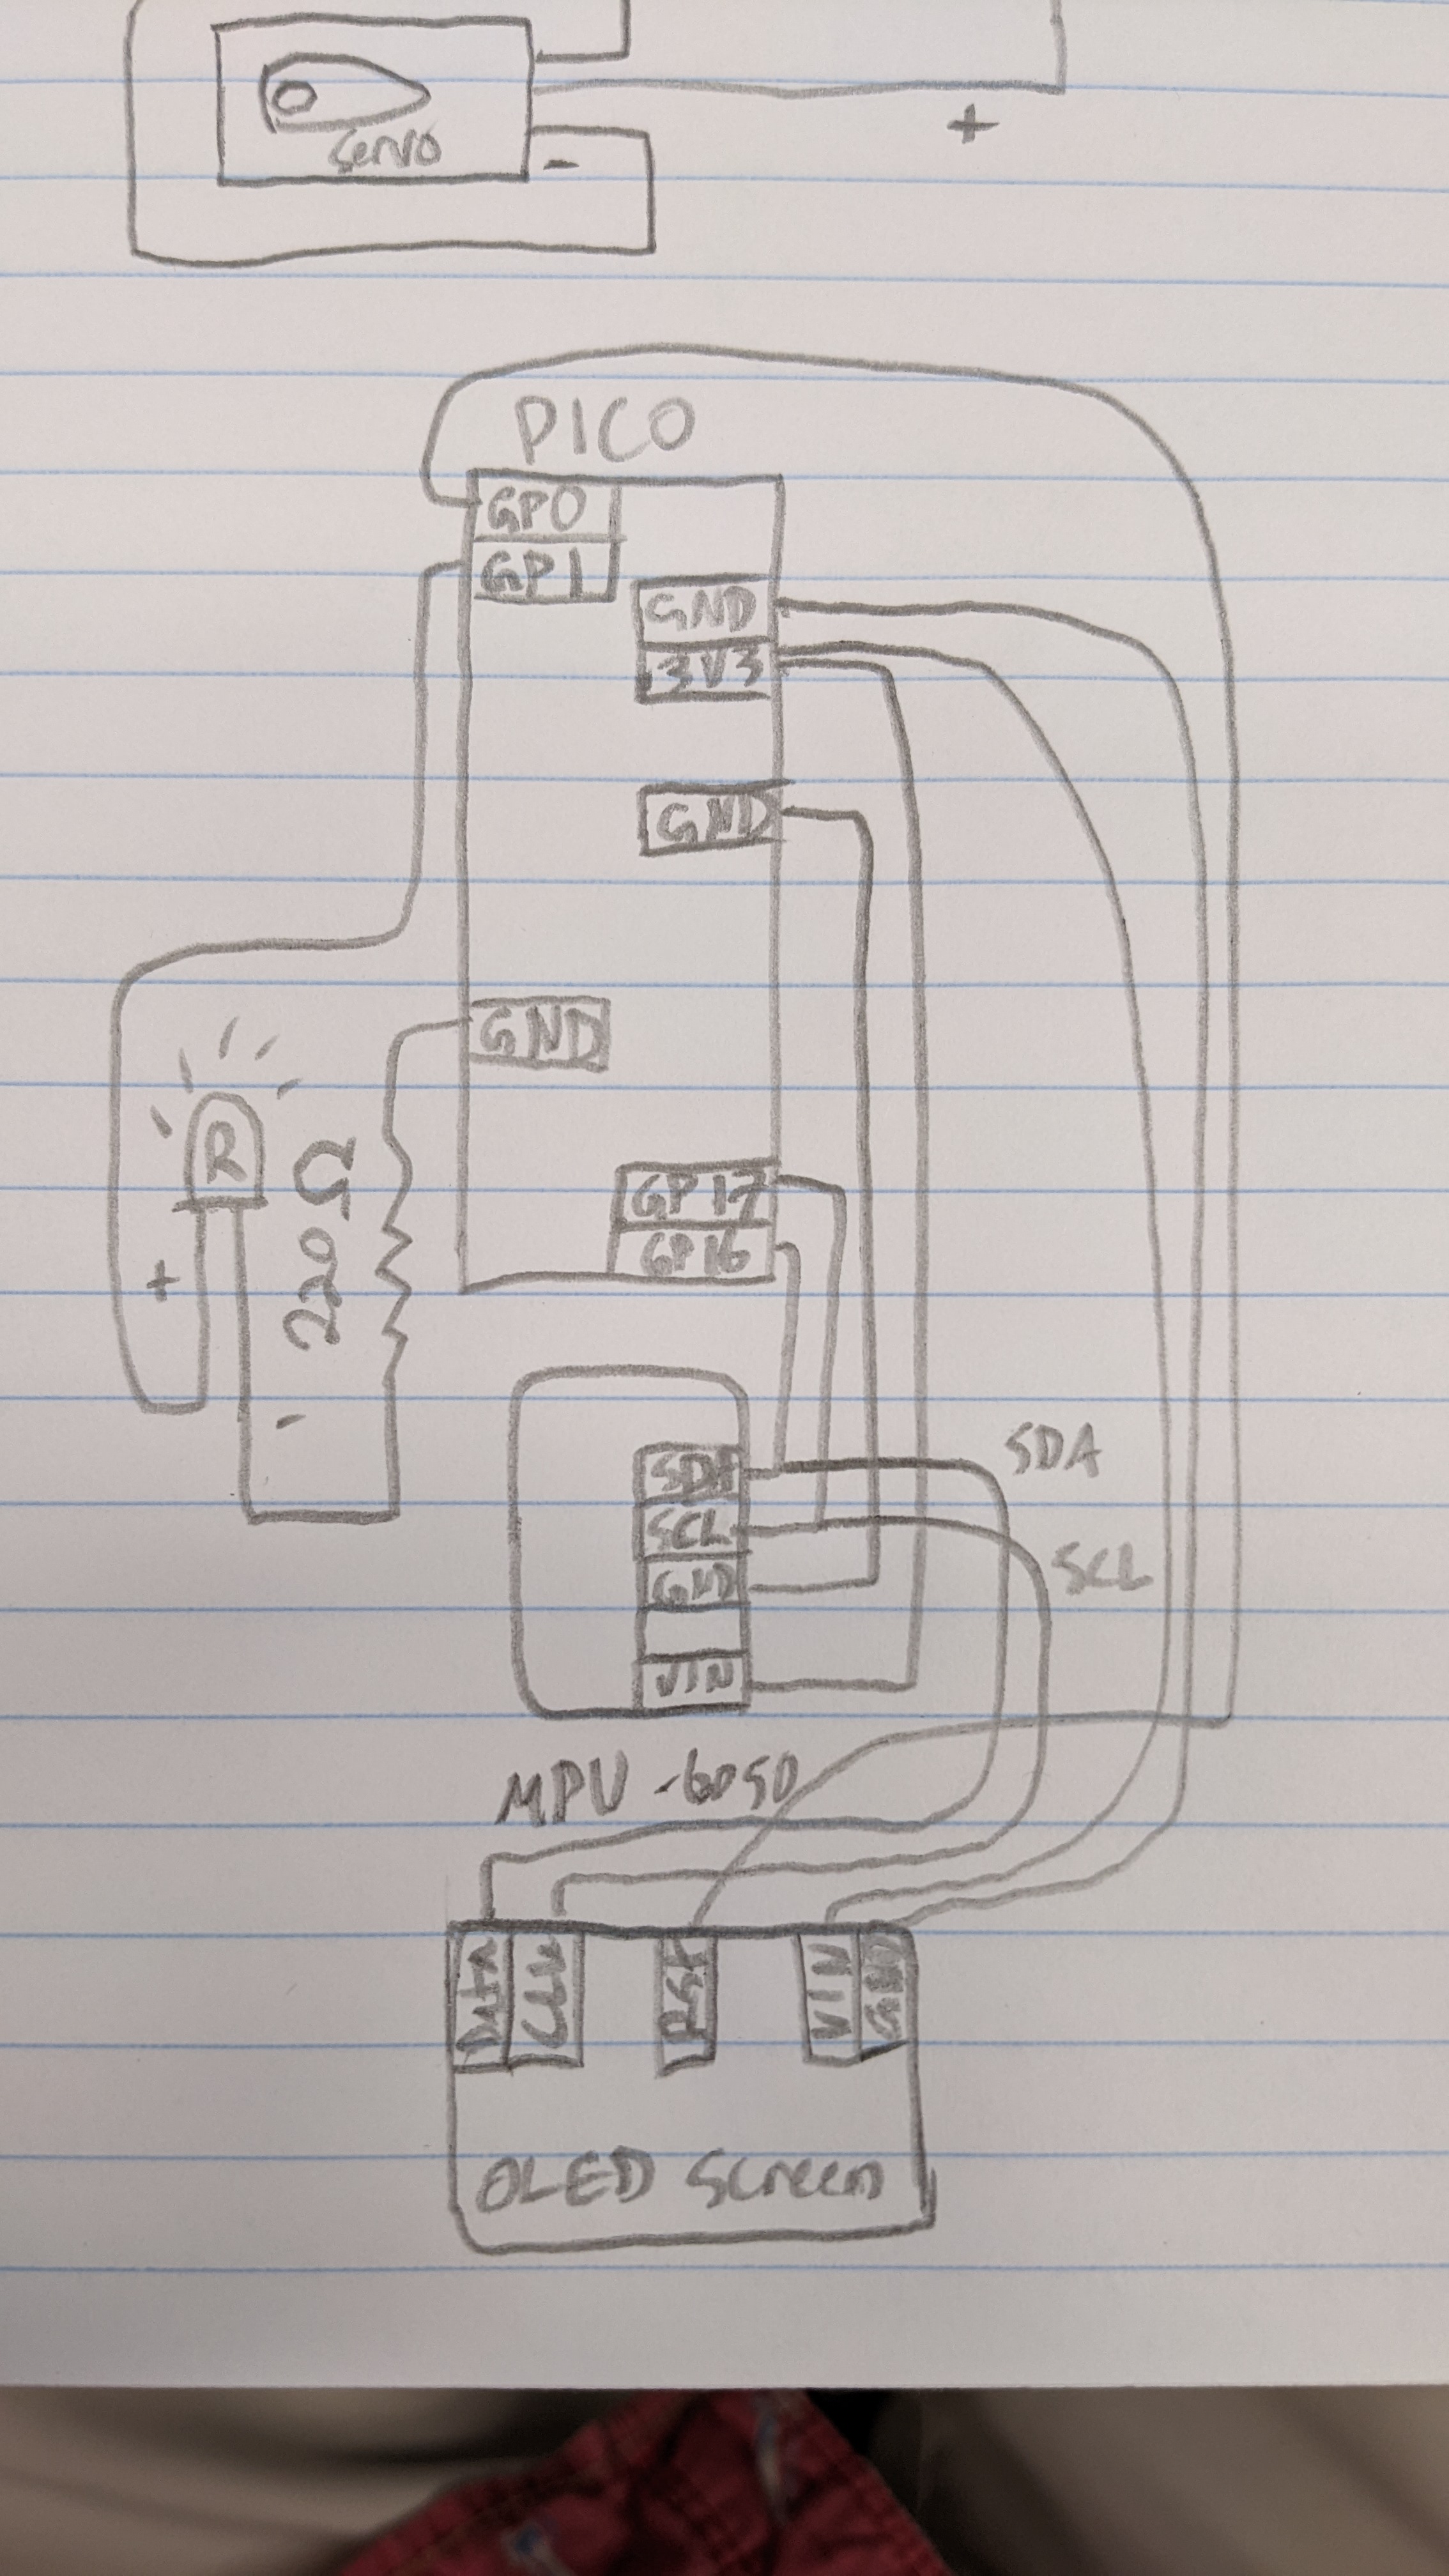 servo
+
-
PICO
GP0
GP1
GND
3V3
GND
GND
R
220Ω
+
-
GP17
GP16
SDA
SCL
GND
VIN
SDA
SCL
MPU-6050
Data
CLK
RST
VIN
GND
OLED Screen